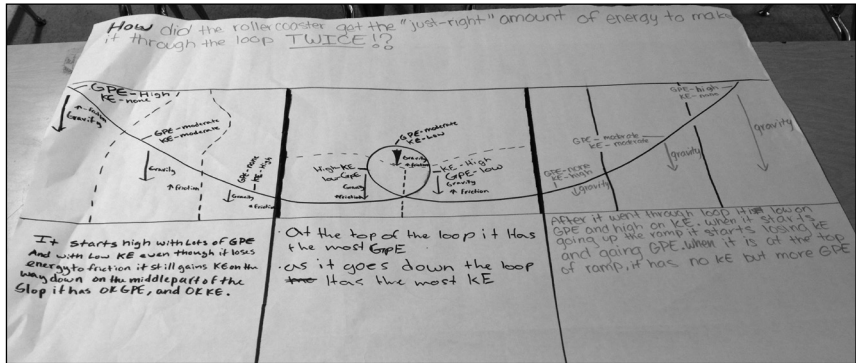 How did the rollercoaster get the "just-right" amount of energy to make
it through the loop TWICE!?
GPE-High
KE-none
↑ friction
Gravity
GPE-moderate
KE-moderate
Gravity
↑ friction
GPE-none
KE-High
Gravity
↑ friction
GPE-moderate
KE-Low
Gravity
High-KE
low-GPE
Gravity
↑ friction
KE-High
GPE-low
Gravity
↑ friction
GPE-none
KE-high
gravity
GPE-moderate
KE-moderate
gravity
GPE-high
KE-none
gravity
It starts high with Lots of GPE
And with Low KE even though it loses
energy to friction it still gains KE on the
way down on the middle part of the
Slop it has OK GPE, and OK KE.
· At the top of the loop it Has
the most GPE
· as it goes down the loop
Has the most KE
After it went through loop its low on
GPE and high on KE. when it starts
going up the ramp it starts losing KE
and gaing GPE. when it is at the top
of ramp, it has no KE but more GPE